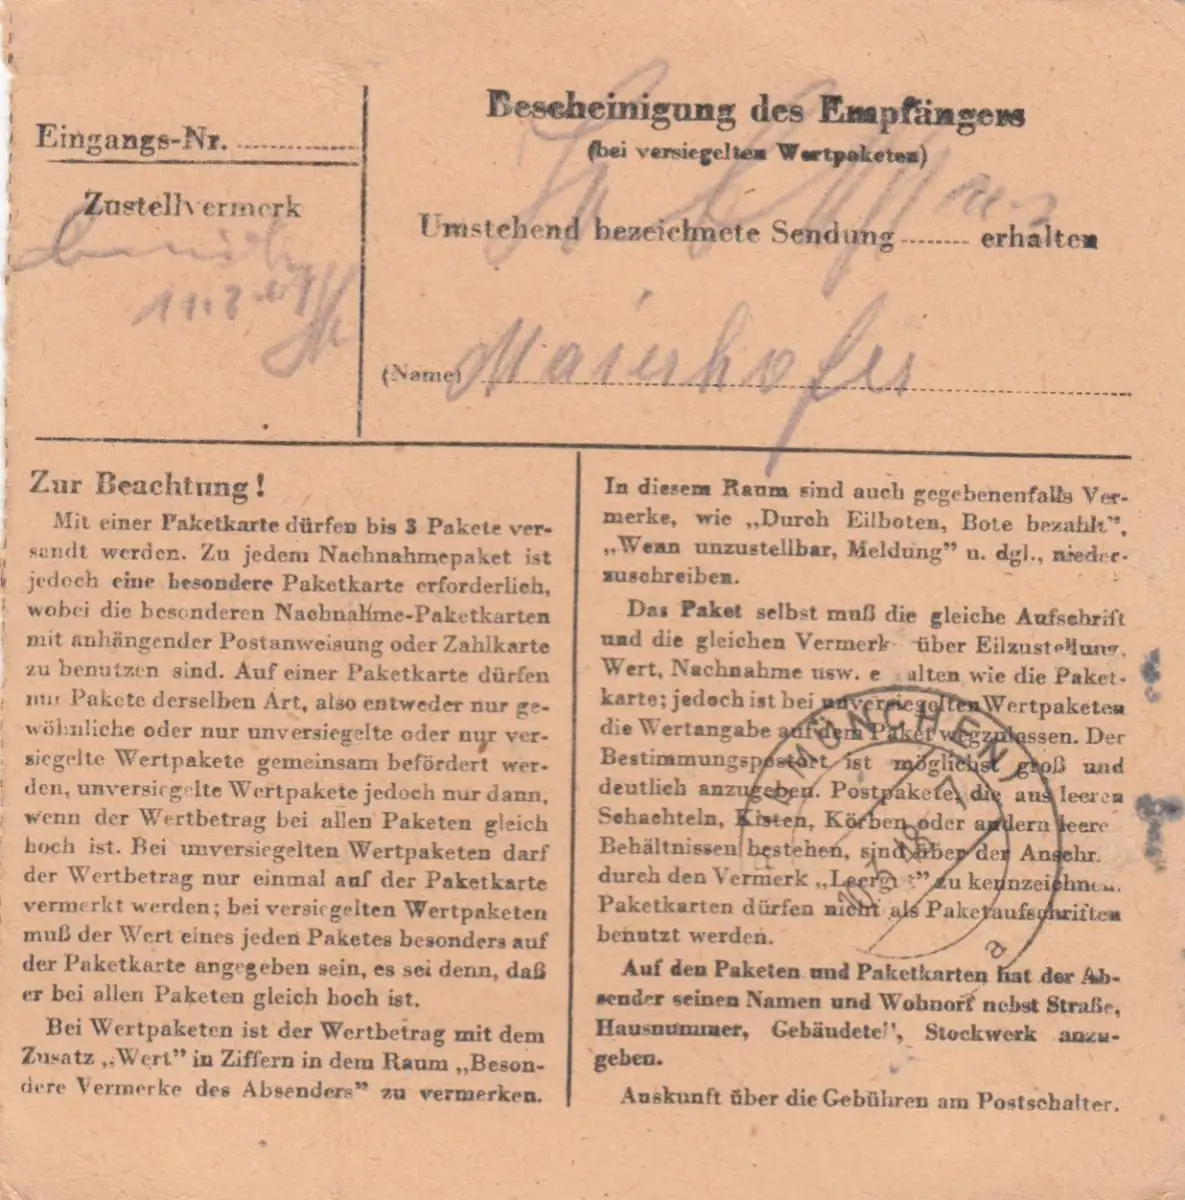 Eingangs-Nr.
Zustellvermerk
Bescheinigung des Empfängers
(bei versiegelten Wertpaketen)
Umstehend bezeichnete Sendung erhalten
(Name) Maierhofer
Zur Beachtung!
Mit einer Paketkarte dürfen bis 3 Pakete ver-
sandt werden. Zu jedem Nachnahmepaket ist
jedoch eine besondere Paketkarte erforderlich,
wobei die besonderen Nachnahme-Paketkarten
mit anhängender Postanweisung oder Zahlkarte
zu benutzen sind. Auf einer Paketkarte dürfen
nur Pakete derselben Art, also entweder nur ge-
wöhnliche oder nur unversiegelte oder nur ver-
siegelte Wertpakete gemeinsam befördert wer-
den, unversiegelte Wertpakete jedoch nur dann,
wenn der Wertbetrag bei allen Paketen gleich
hoch ist. Bei unversiegelten Wertpaketen darf
der Wertbetrag nur einmal auf der Paketkarte
vermerkt werden; bei versiegelten Wertpaketen
muß der Wert eines jeden Paketes besonders auf
der Paketkarte angegeben sein, es sei denn, daß
er bei allen Paketen gleich hoch ist.
Bei Wertpaketen ist der Wertbetrag mit dem
Zusatz „Wert" in Ziffern in dem Raum „Beson-
dere Vermerke des Absenders" zu vermerken.
In diesem Raum sind auch gegebenenfalls Ver-
merke, wie „Durch Eilboten, Bote bezahlt",
„Wenn unzustellbar, Meldung" u. dgl., nieder-
zuschreiben.
Das Paket selbst muß die gleiche Aufschrift
und die gleichen Vermerk über Eilzustellung,
Wert, Nachnahme usw. e alten wie die Paket-
karte; jedoch ist bei unversiegelten Wertpaketen
die Wertangabe auf dem Paket wegzulassen. Der
Bestimmungspostort ist möglichst groß und
deutlich anzugeben. Postpakete, die aus leeren
Schachteln, Kisten, Körben oder andern leere
Behältnissen bestehen, sind über der Anschr.
durch den Vermerk „Leergut" zu kennzeichnen.
Paketkarten dürfen nicht als Paketaufschriften
benutzt werden.
Auf den Paketen und Paketkarten hat der Ab-
sender seinen Namen und Wohnort nebst Straße,
Hausnummer, Gebäudeteil, Stockwerk anzu-
geben.
Auskunft über die Gebühren am Postschalter.
MÜNCHEN
a